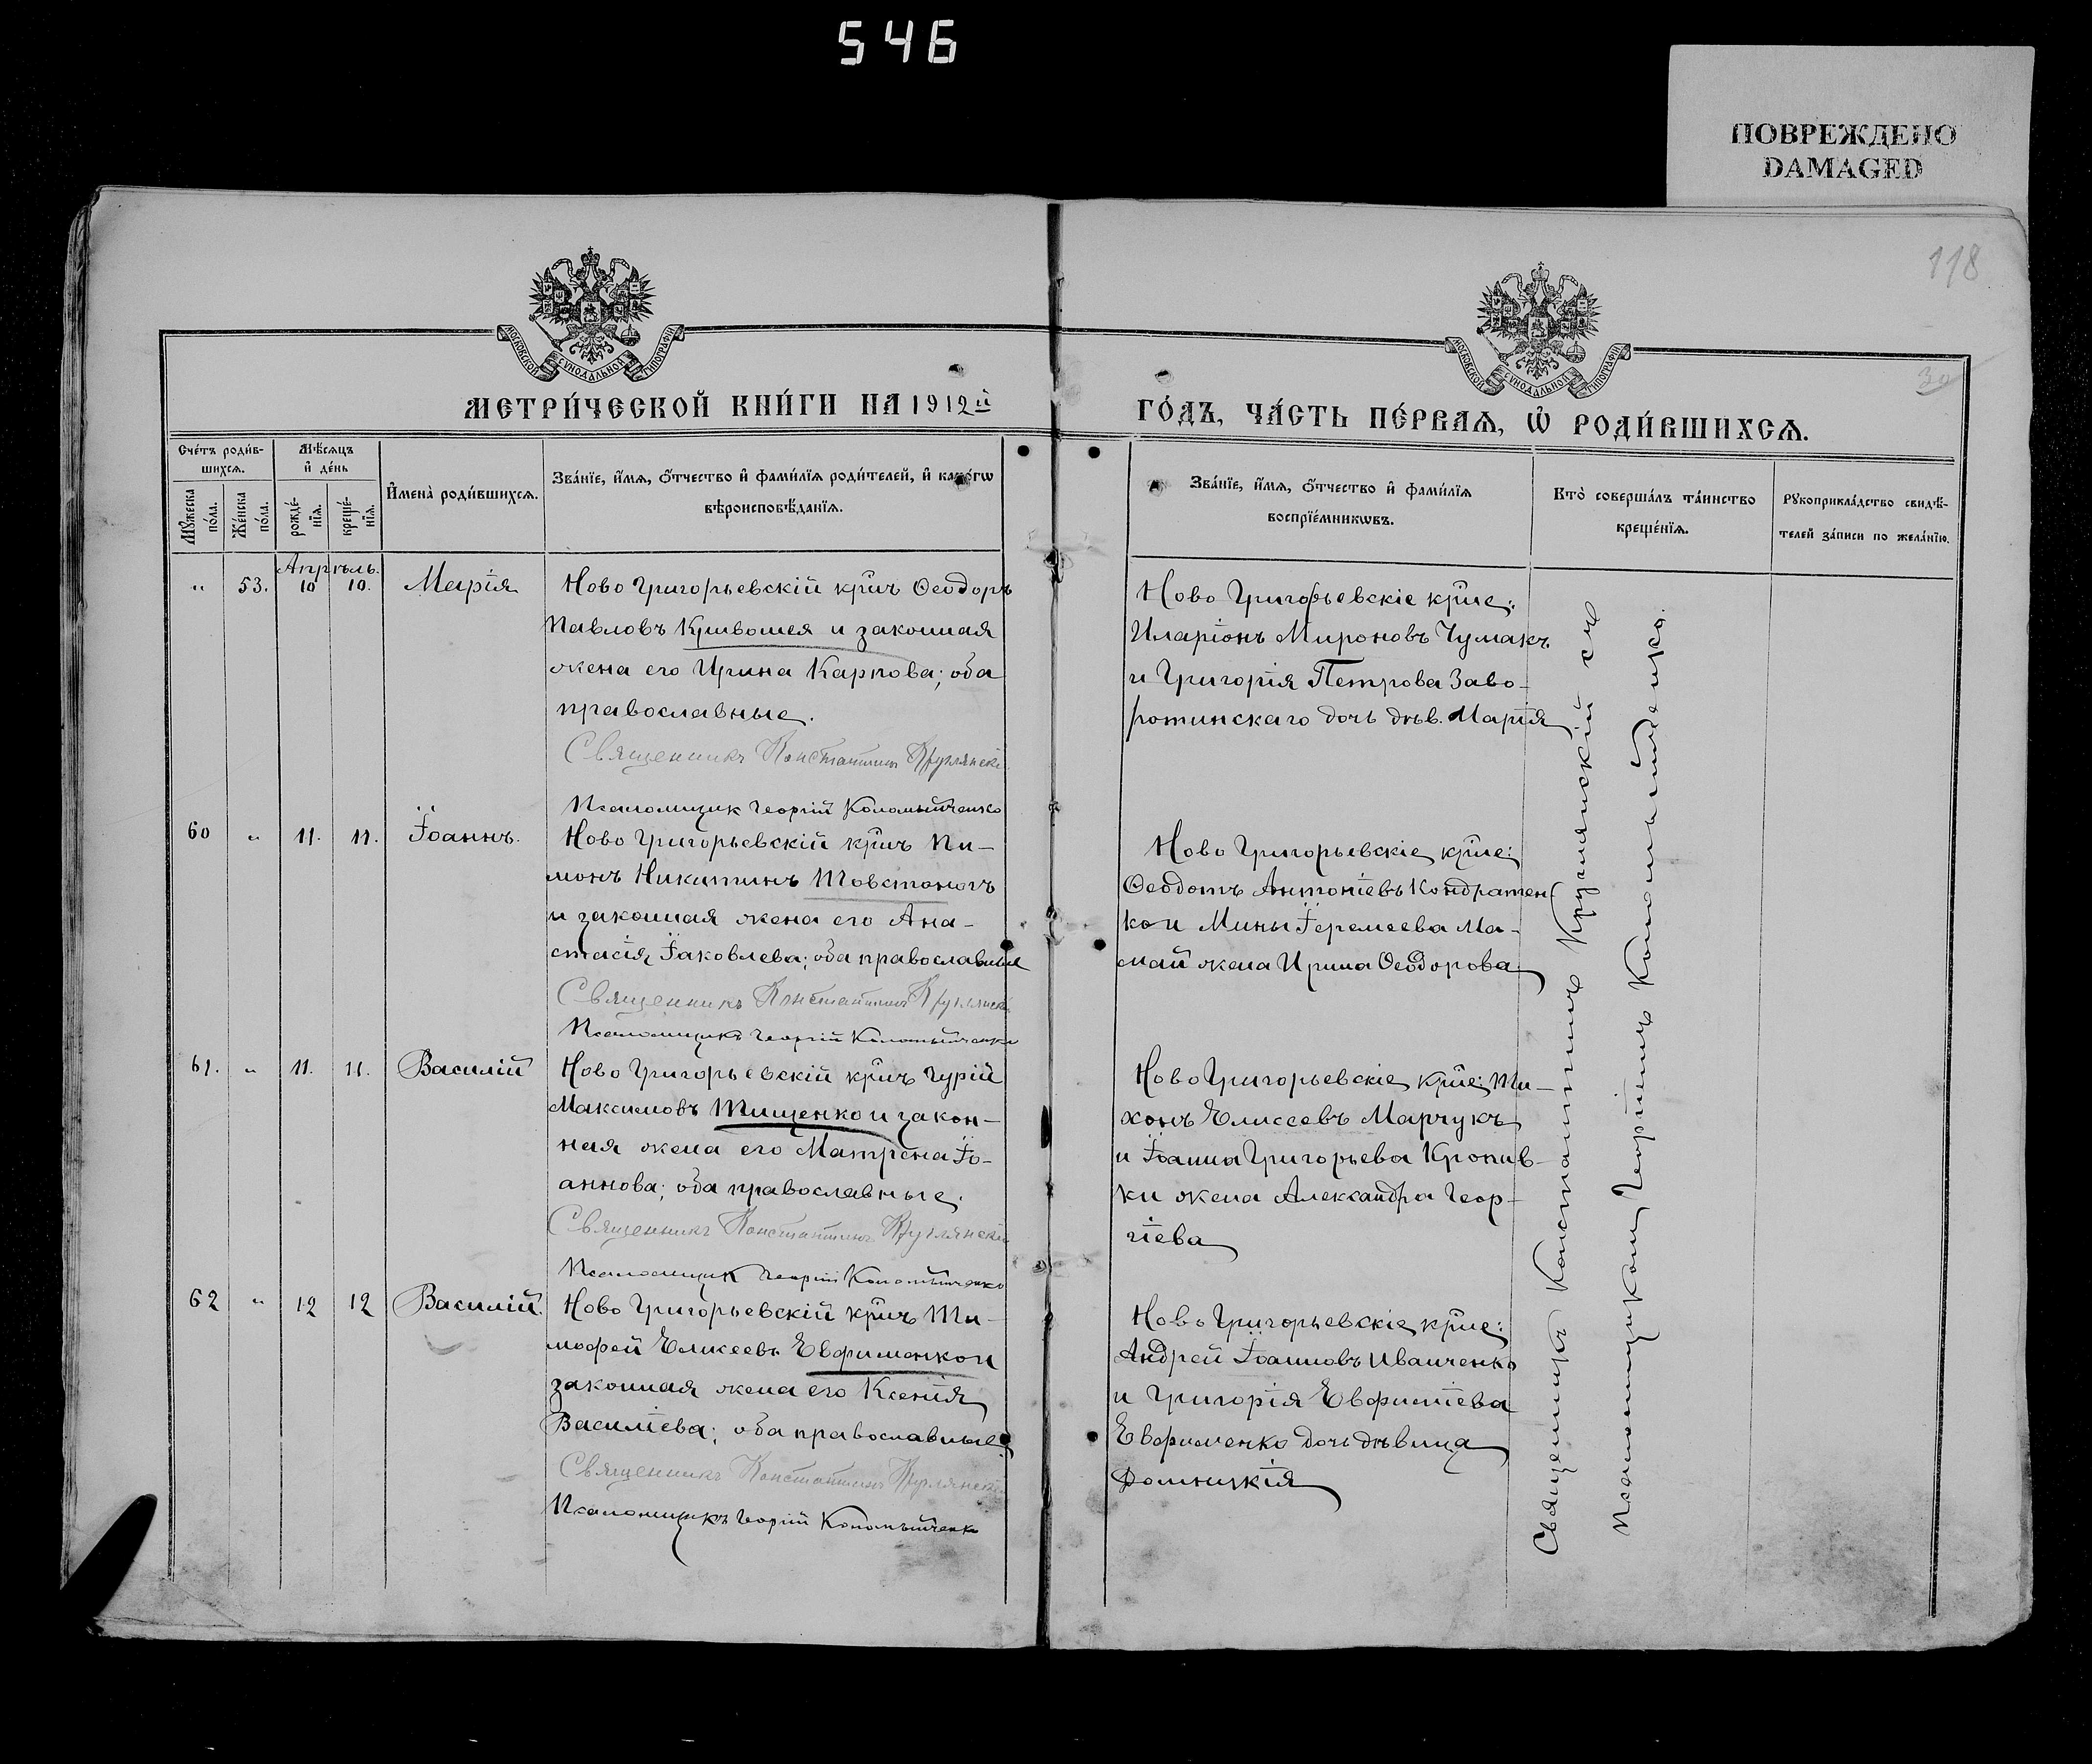 546
ПОВРЕЖДЕНО
DAMAGED
118
30
МОСКОВСКОЙ СѴНОДАЛЬНОЙ ТИПОГРАФІИ
МОСКОВСКОЙ СѴНОДАЛЬНОЙ ТИПОГРАФІИ
МЕТРИ́ЧЕСКОЙ КНИ́ГИ НА 1912й
ГО́ДЪ, ЧА́СТЬ ПЕ́РВАѦ, Ѡ҆ РОДИ́ВШИХСѦ.
Сче́тъ роди́в-
шихсѧ.
Мꙋ́жеска по́ла.
Же́нска по́ла.
Мѣ́сѧцъ
и҆ де́нь
рожде́-
нїѧ.
креще́-
нїѧ.
И҆мена̀ роди́вшихсѧ.
Зва́нїе, и҆́мѧ, ѻ҆́тчество и҆ фами́лїѧ роди́телей, и҆ како́гѡ
вѣроисповѣ́данїѧ.
Зва́нїе, и҆́мѧ, ѻ҆́тчество и҆ фами́лїѧ
воспрїе́мникѡвъ.
Кто̀ соверша́лъ та́инство
креще́нїѧ.
Рꙋкоприкла́дство свидѣ́-
телей за́писи по жела́нїю.
Апрѣль.
" 53. 10 10. Марія
Ново Григорьевскій кр̃нъ Ѳеодоръ
Павловъ Кривошея и законная
жена его Ирина Карпова; оба
православные.
Священникъ Константинъ Круглянскій
Псаломщик Георгій Коломыйченко
Ново Григорьевскіе кр̃не:
Иларіонъ Мироновъ Чумакъ
и Григорія Петрова Заво-
ротинскаго дочь дѣв. Марія
60 " 11. 11. Іоаннъ.
Ново Григорьевскій кр̃нъ Пи-
монъ Никитинъ Товстоногъ
и законная жена его Ана-
стасія Іаковлева; оба православные
Священникъ Константинъ Круглянскій
Псаломщикъ Георгій Коломыйченко
Ново Григорьевскіе кр̃не:
Ѳеодотъ Антоніевъ Кондратен
ко и Мины Іеремеева Ма-
май жена Ирина Ѳеодорова
61. " 11. 11. Василій
Ново Григорьевскій кр̃нъ Гурій
Максимовъ Тищенко и закон-
ная жена его Матрена Іо-
аннова; оба православные.
Священникъ Константинъ Круглянскій
Псаломщик Георгій Коломыйченко
Ново Григорьевскіе кр̃не: Ти-
хонъ Елисеевъ Марчукъ
и Іоанна Григорьева Кропив-
ки жена Александра Геор-
гіева
62 " 12 12 Василій.
Ново Григорьевскій кр̃нъ Ти-
мофей Еликеевъ Евфименко и
законная жена его Ксенія
Василіева; оба православные
Священникъ Константинъ Круглянскій
Псаломщикъ Георгій Коломыйченко
Ново Григорьевскіе кр̃не:
Андрей Іоанновъ Иванченко
и Григорія Евфиміева
Евфименко дочь дѣвица
Домникія
Священникъ Константинъ Круглянскій съ
Псаломщикомъ Георгіемъ Коломыйченко.